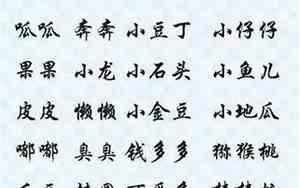 呱呱 奔奔 小豆丁 小仔仔
果果 小龙 小石头 小鱼儿
皮皮 懒懒 小金豆 小地瓜
嘟嘟 臭臭 钱多多 猕猴桃